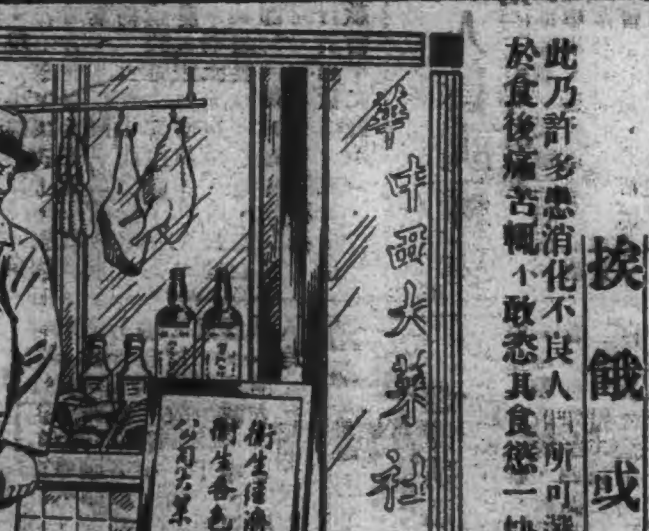 挨餓或
此乃許多患消化不良人們所可
於食後痛苦輒不敢恣其食慾一
華中西大菜社
衛生經濟
衛生各色
公司大菜